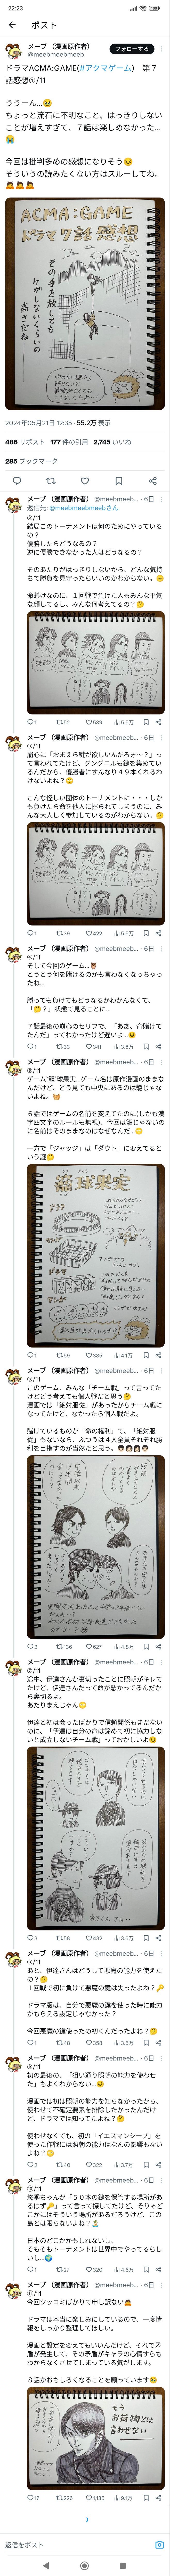 22:23
ポスト
メープ（漫画原作者）
@meebmeebmeeb
フォローする
ドラマACMA:GAME(#アクマゲーム)　第７
話感想①/11
ううーん...🥺
ちょっと流石に不明なこと、はっきりしない
ことが増えすぎて、７話は楽しめなかった...
😭
今回は批判多めの感想になりそう😣
そういうの読みたくない方はスルーしてね。
🙇🙇🙇
ACMA:GAME
ドラマ7話 感想
その手を放しても
ケガしないくらいの
高さだね
2024年05月21日 12:35 · 55.2万 表示
486 リポスト 177 件の引用 2,745 いいね
285 ブックマーク
メープ（漫画原作者） @meebmeeb... · 6日
返信先: @meebmeebmeebさん
②/11
結局このトーナメントは何のためにやっている
の？
優勝したらどうなるの？
逆に優勝できなかった人はどうなるの？
そのあたりがはっきりしないから、どんな気持
ちで勝負を見守ったらいいのかわからない。😣
命懸けなのに、１回戦で負けた人もみんな平気
な顔してるし、みんな何考えてるの？🤔
1 52 539 5.5万
メープ（漫画原作者） @meebmeeb... · 6日
③/11
崩心に「おまえら鍵が欲しいんだろォ〜？」っ
て言われてたけど、グングニルも鍵を集めてい
るんだから、優勝者にすんなり４９本くれるわ
けないよね？🙄
こんな怪しい団体のトーナメントに・・・しか
も負けたら命を他人に握られてしまうのに、み
んな大人しく参加しているのがわからない。🤔
1 39 422 5.5万
メープ（漫画原作者） @meebmeeb... · 6日
④/11
そして今回のゲーム...
とうとう何を賭けるのかも言わなくなっちゃっ
たね...
勝っても負けてもどうなるかわかんなくて、
「🤔？」状態で見ることに...
７話最後の崩心のセリフで、「ああ、命賭けて
たんだ」ってわかったけど遅いよ...😣
1 33 341 3.8万
メープ（漫画原作者） @meebmeeb... · 6日
⑤/11
ゲーム「籠球果実」...ゲーム名は原作漫画のままな
んだけど、どう見ても中央にあるのは籠じゃな
いよね。
６話ではゲームの名前を変えてたのに(しかも漢
字四文字のルールも無視)、今回は籠じゃないの
に名前はそのままなのはなぜなんだ...🙄
一方で「ジャッジ」は「ダウト」に変えてると
いう謎🤔
籠球果実
1 59 385 4.1万
メープ（漫画原作者） @meebmeeb... · 6日
⑥/11
このゲーム、みんな「チーム戦」って言ってた
けどどう考えても個人戦だと思う🤔
漫画では「絶対服従」があったからチーム戦に
なってたけど、なかったら個人戦だよ。
賭けているものが「命の権利」で、「絶対服
従」もないなら、ふつうは４人全員それぞれ勝
利を目指すのが当然だと思う。
2 136 627 4.8万
メープ（漫画原作者） @meebmeeb... · 6日
⑦/11
途中、伊達さんが裏切ったことに照朝がキレて
たけど、伊達さんだって命が懸かってるんだから
裏切るよ。
あたりまえじゃん🙄
伊達と初は会ったばかりで信頼関係もまだない
のに、「伊達は自分の命は諦めて初に協力しな
いと成立しないチーム戦」っておかしいよ😣
3 58 432 3.6万
メープ（漫画原作者） @meebmeeb... · 6日
⑧/11
あと、伊達さんはどうして悪魔の能力を使えた
の？🤔
１回戦で初に負けて悪魔の鍵は失ったよね？🔑
ドラマ版は、自分で悪魔の鍵を使った時に能力
がもらえる設定じゃなかった？
今回悪魔の鍵使ったの初くんだったよね？🤔
1 48 356 3.5万
メープ（漫画原作者） @meebmeeb... · 6日
⑨/11
初の最後の、「狙い通り照朝の能力を使わせ
た」もよくわからない...😣
漫画では初は照朝の能力を知らなかったから、
使わせて不確定要素を排除したかったんだけ
ど、ドラマでは知ってたよね？🤔
使わせなくても、初の「イエスマンシープ」を
使った作戦には照朝の能力はなんの影響もない
よね？🙄
2 40 322 3.7万
メープ（漫画原作者） @meebmeeb... · 6日
⑩/11
悠季ちゃんが「５０本の鍵を保管する場所があ
るはず🔑」って言って探してたけど、そりゃど
こかにはそういう場所があるだろうけど、この
島とは限らないよね？🏝
日本のどこかかもしれないし、
そもそもトーナメントは世界中でやってるらし
いし...🌍
1 27 320 4.8万
メープ（漫画原作者） @meebmeeb... · 6日
⑪/11
今回ツッコミばかりで申し訳ない🙇
ドラマは本当に楽しみにしているので、一度情
報をしっかり整理してほしい。
漫画と設定を変えてもいいんだけど、それで矛
盾が発生して、その矛盾がキャラの心情すらも
わからなくさせてしまっている気がします。
８話がおもしろくなることを願っています🥺
もう
お荷物とは
言わせない
17 226 1,135 9.1万
返信をポスト